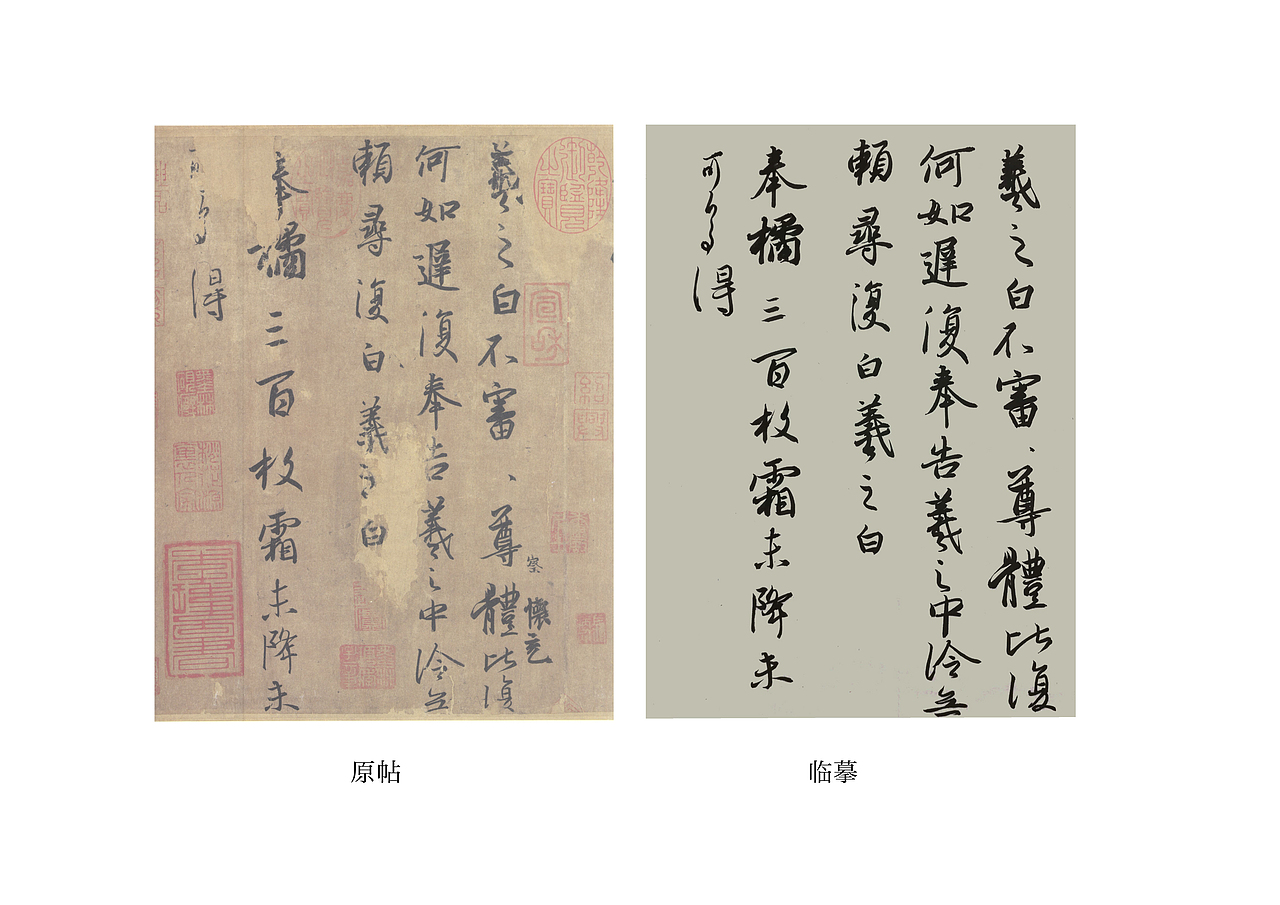 羲之白不審、尊體比復
何如遲復奉告羲之中冷無
賴尋復白羲之白
奉橘三百枚霜未降未
可多得
察
懷充
乾隆御覽之寶
紹興
原帖
羲之白不審、尊體比復
何如遲復奉告羲之中冷無
賴尋復白羲之白
奉橘三百枚霜未降未
可多得
临摹